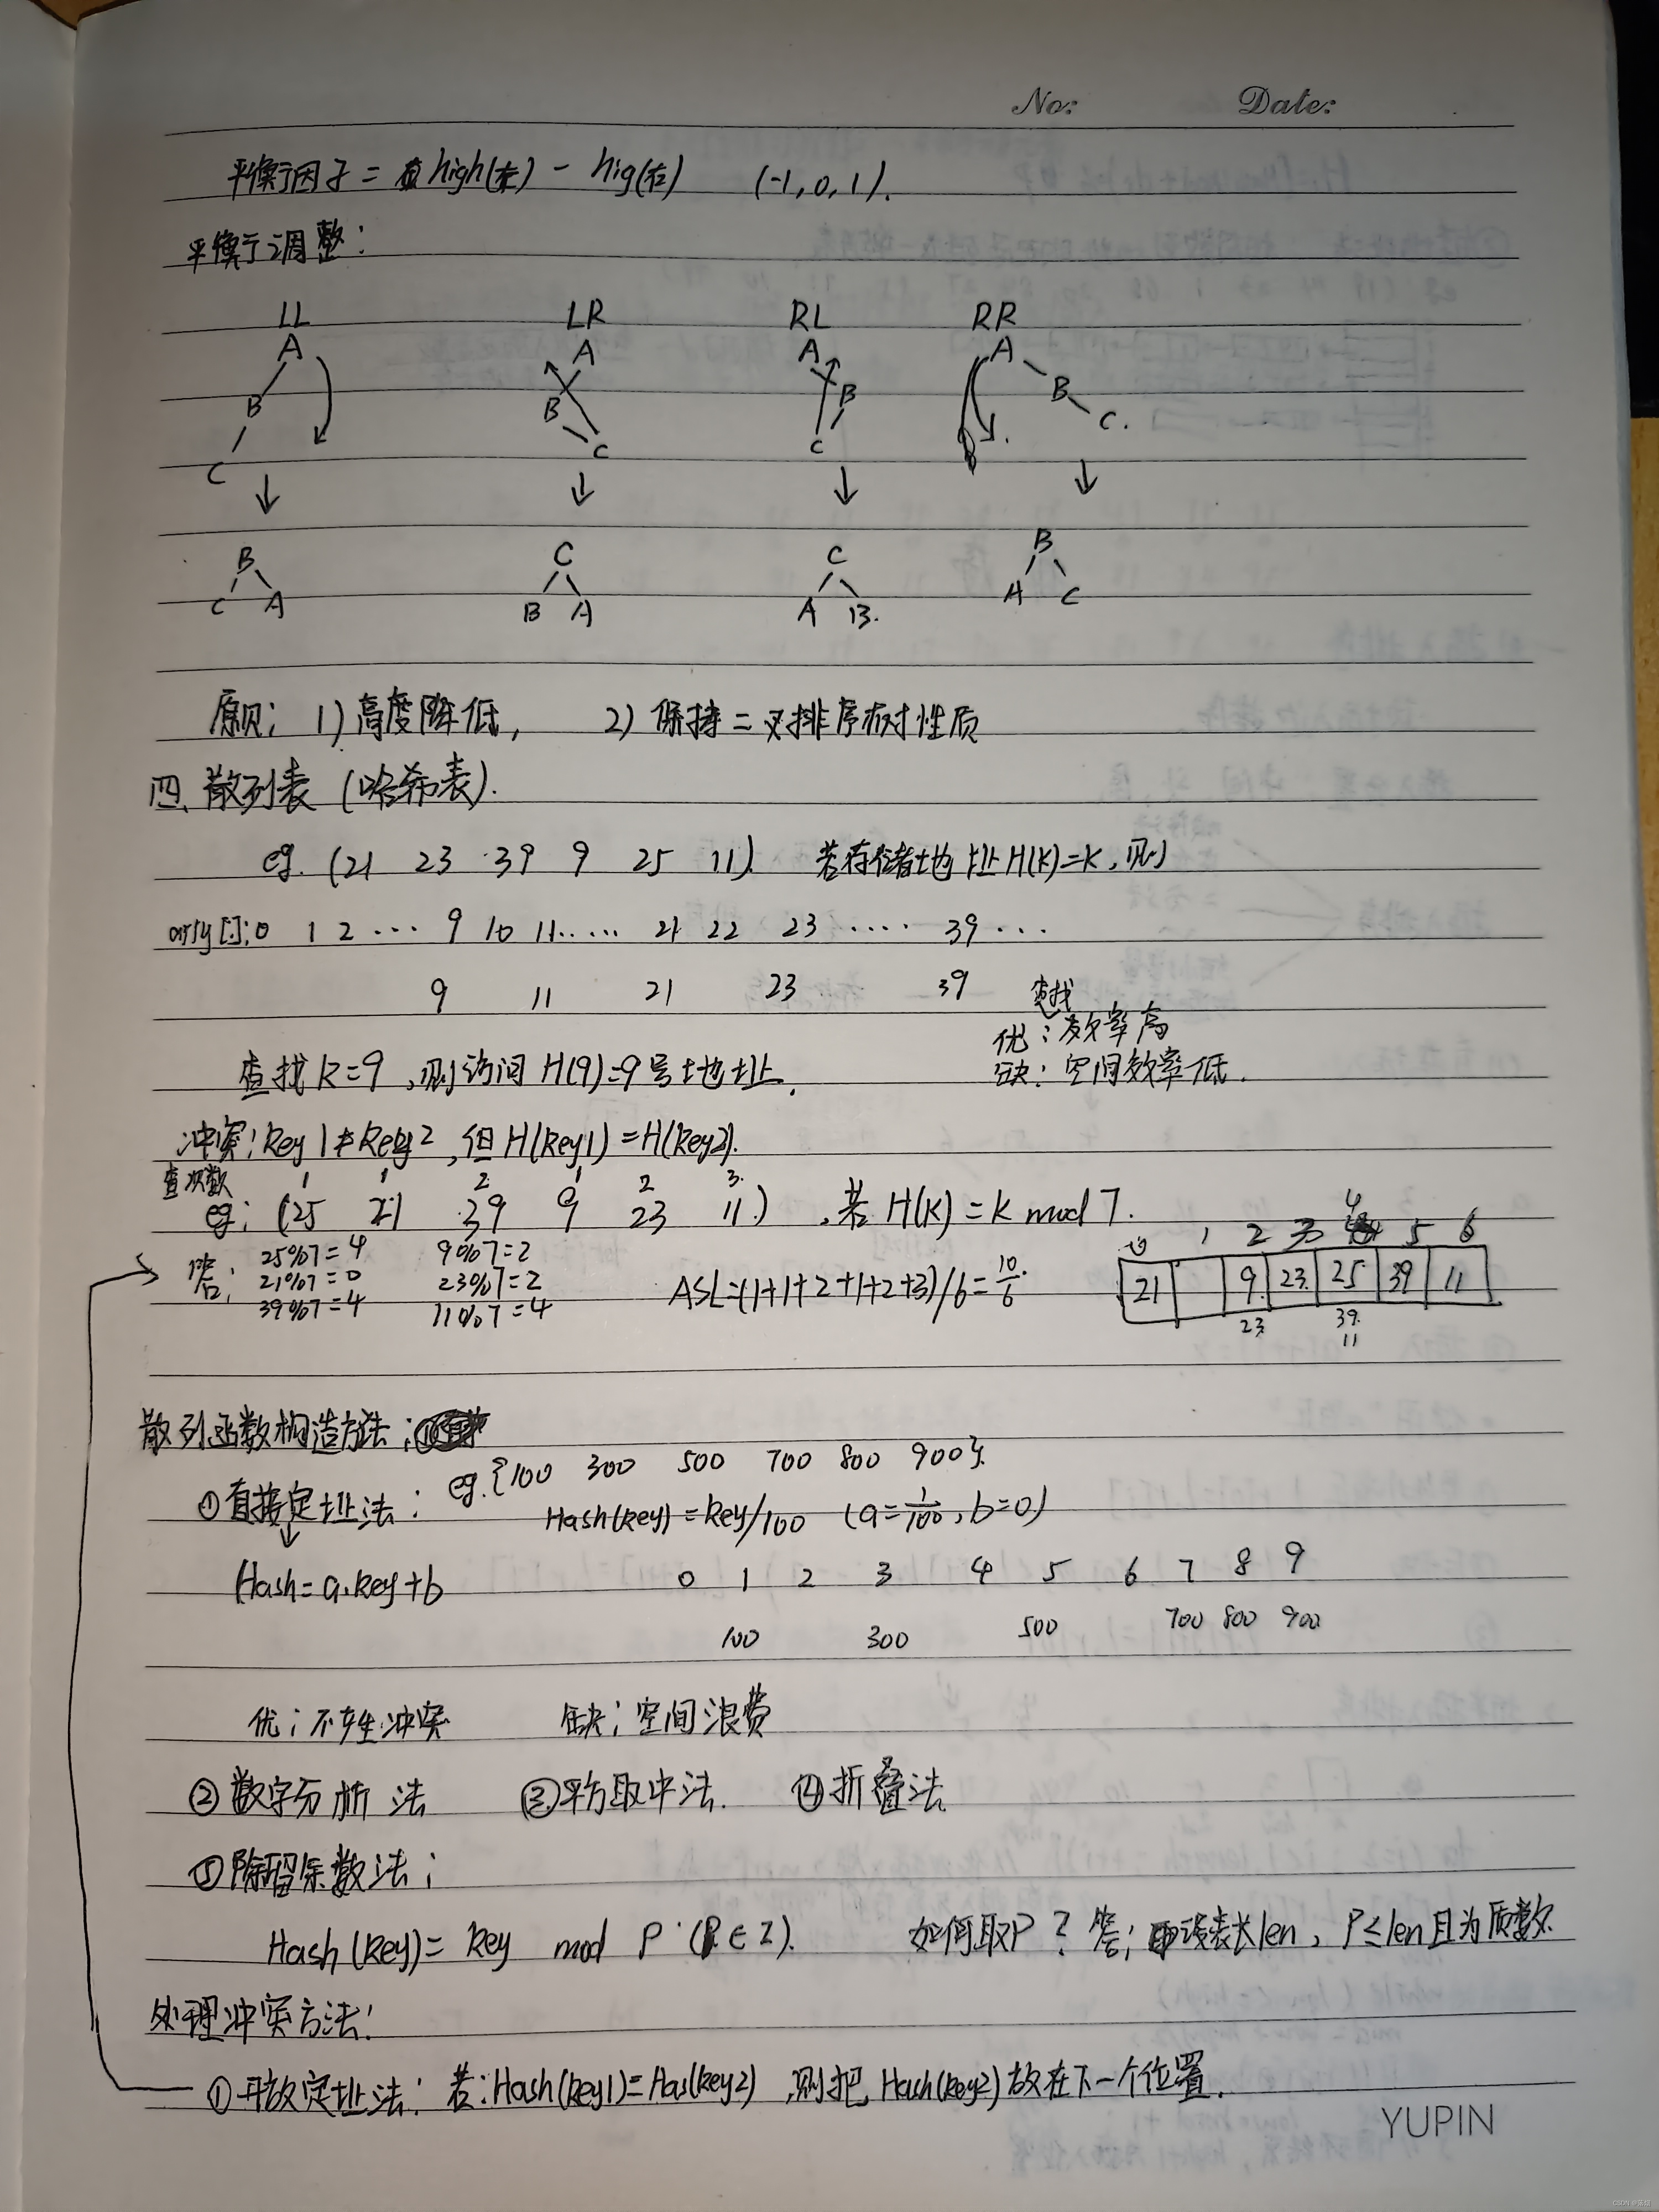 No: Date:
平衡因子 = high(左) - hig(右) (-1, 0, 1).
平衡调整:
LL LR RL RR
A A A A
B B B B
C C C C.
↓ ↓ ↓ ↓
B C C B
C A B A A B. A C
原则: 1) 高度降低, 2) 保持二叉排序树性质
四. 散列表 (哈希表).
eg. (21 23 39 9 25 11). 若存储地址H(K)=K, 则
arry[]: 0 1 2 ... 9 10 11...... 21 22 23 .... 39 ...
9 11 21 23 39
查找
优: 效率高
查找K=9, 则访问 H(9)=9号地址.
缺: 空间效率低.
冲突: Key1≠Key2, 但H(Key1)=H(Key2).
查次数 1 1 2 1 2 3.
eg: (25 21 39 9 23 11.) , 若 H(K) = K mod 7.
0 1 2 3 4 5 6
答: 25%7=4 9%7=2
21%7=0 23%7=2
39%7=4 11%7=4
ASL=(1+1+2+1+2+3)/6=10/6.
21 9. 23. 25 39 11
23 39.
11
散列函数构造方法:
①直接定址法: eg.{100 300 500 700 800 900}.
Hash(Key)=Key/100 (a=1/100, b=0)
Hash=a.Key+b
0 1 2 3 4 5 6 7 8 9
100 300 500 700 800 900
优: 不产生冲突 缺: 空间浪费
②数字分析法 ③平方取中法. ④折叠法
⑤除留余数法:
Hash(Key)= Key mod P (P∈Z). 如何取P? 答: 设表长len, P≤len且为质数.
处理冲突方法:
①开放定址法: 若:Hash(Key1)=Has(Key2) ,则把 Hash(Key2)放在下一个位置.
YUPIN